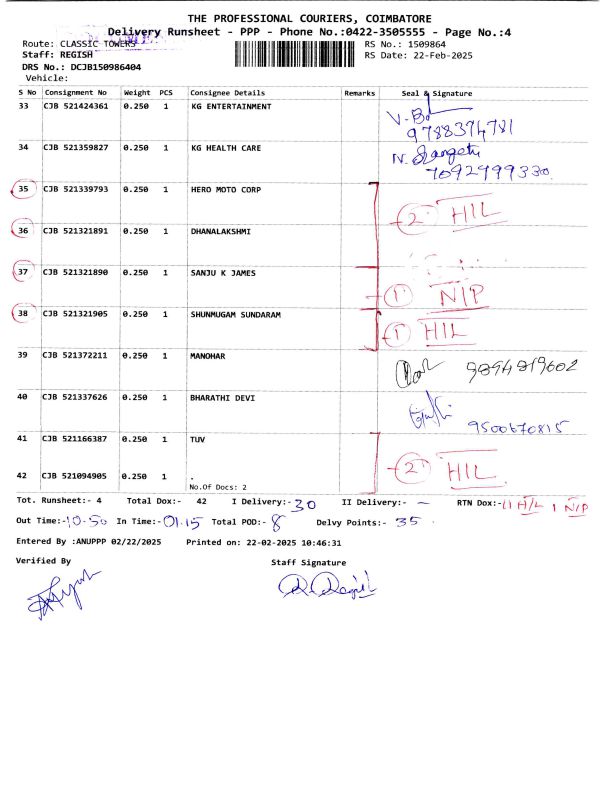 THE PROFESSIONAL COURIERS, COIMBATORE
Delivery Runsheet - PPP - Phone No.:0422-3505555 - Page No.:4
Route: CLASSIC TOWERS
RS No.: 1509864
Staff: REGISH
RS Date: 22-Feb-2025
DRS No.: DCJB150986404
Vehicle:
S No Consignment No Weight PCS Consignee Details Remarks Seal & Signature
33 CJB 521424361 0.250 1 KG ENTERTAINMENT
9788374781
34 CJB 521359827 0.250 1 KG HEALTH CARE
7092999330
35 CJB 521339793 0.250 1 HERO MOTO CORP
2 H/L
36 CJB 521321891 0.250 1 DHANALAKSHMI
37 CJB 521321890 0.250 1 SANJU K JAMES
1 N/P
38 CJB 521321905 0.250 1 SHUNMUGAM SUNDARAM
1 H/L
39 CJB 521372211 0.250 1 MANOHAR
9894819602
40 CJB 521337626 0.250 1 BHARATHI DEVI
9500670815
41 CJB 521166387 0.250 1 TUV
2 H/L
42 CJB 521094905 0.250 1 .
No.Of Docs: 2
Tot. Runsheet:- 4 Total Dox:- 42 I Delivery:- 30 II Delivery:- - RTN Dox:- 11 H/L 1 N/P
Out Time:- 10-50 In Time:- 01.15 Total POD:- 8 Delvy Points:- 35
Entered By :ANUPPP 02/22/2025 Printed on: 22-02-2025 10:46:31
Verified By Staff Signature